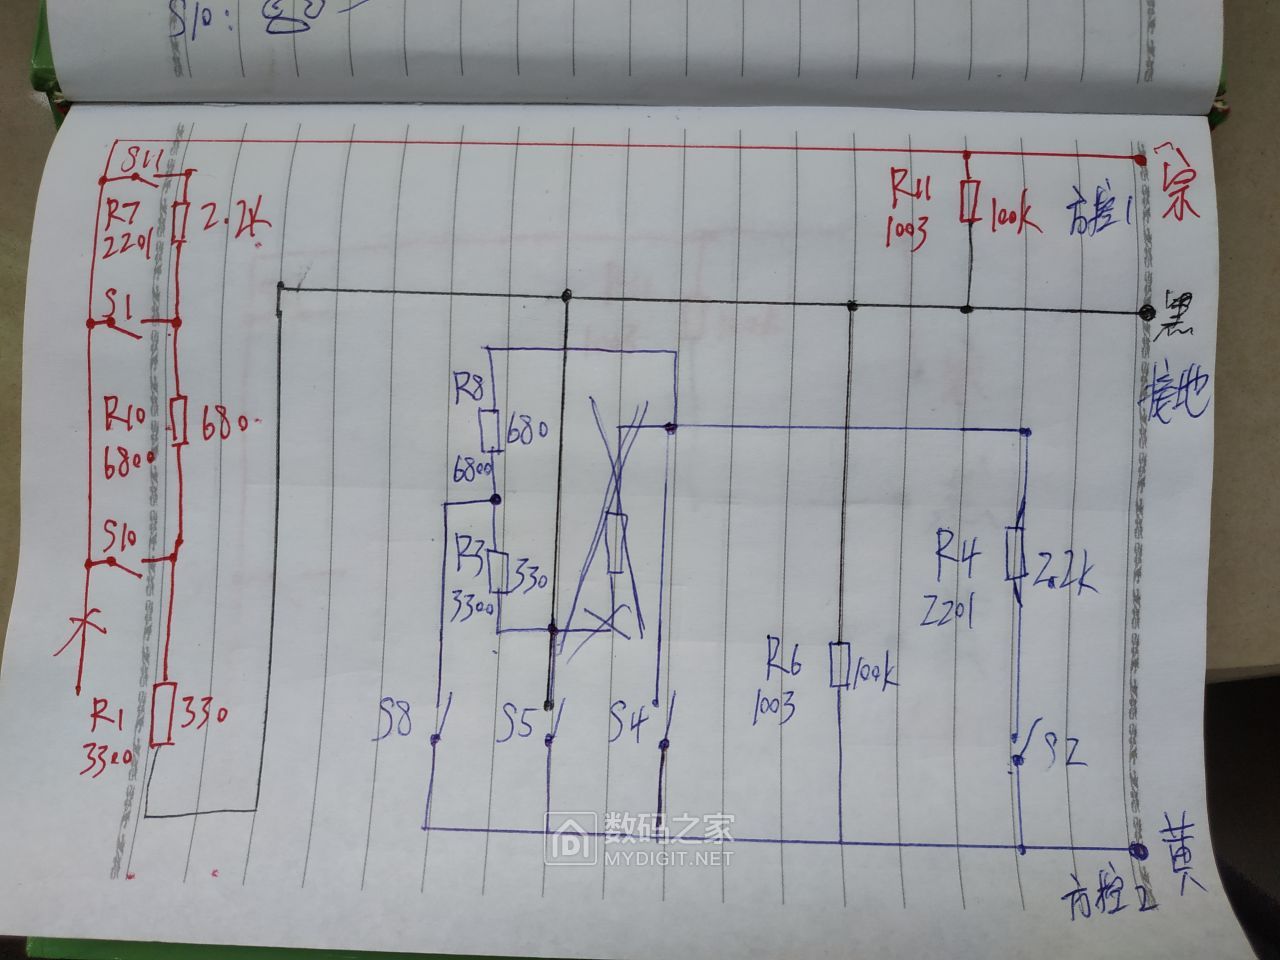 S10:
S11
R7
2201
2.2K
S1
R10
6800
680
S10
R1
3300
330
R11
1003
100k
方控1
宗
黑
接地
R8
680
6800
R3
330
3300
R4
2201
2.2k
R6
1003
100k
S8
S5
S4
S2
黄
方控2
数码之家
MYDIGIT.NET